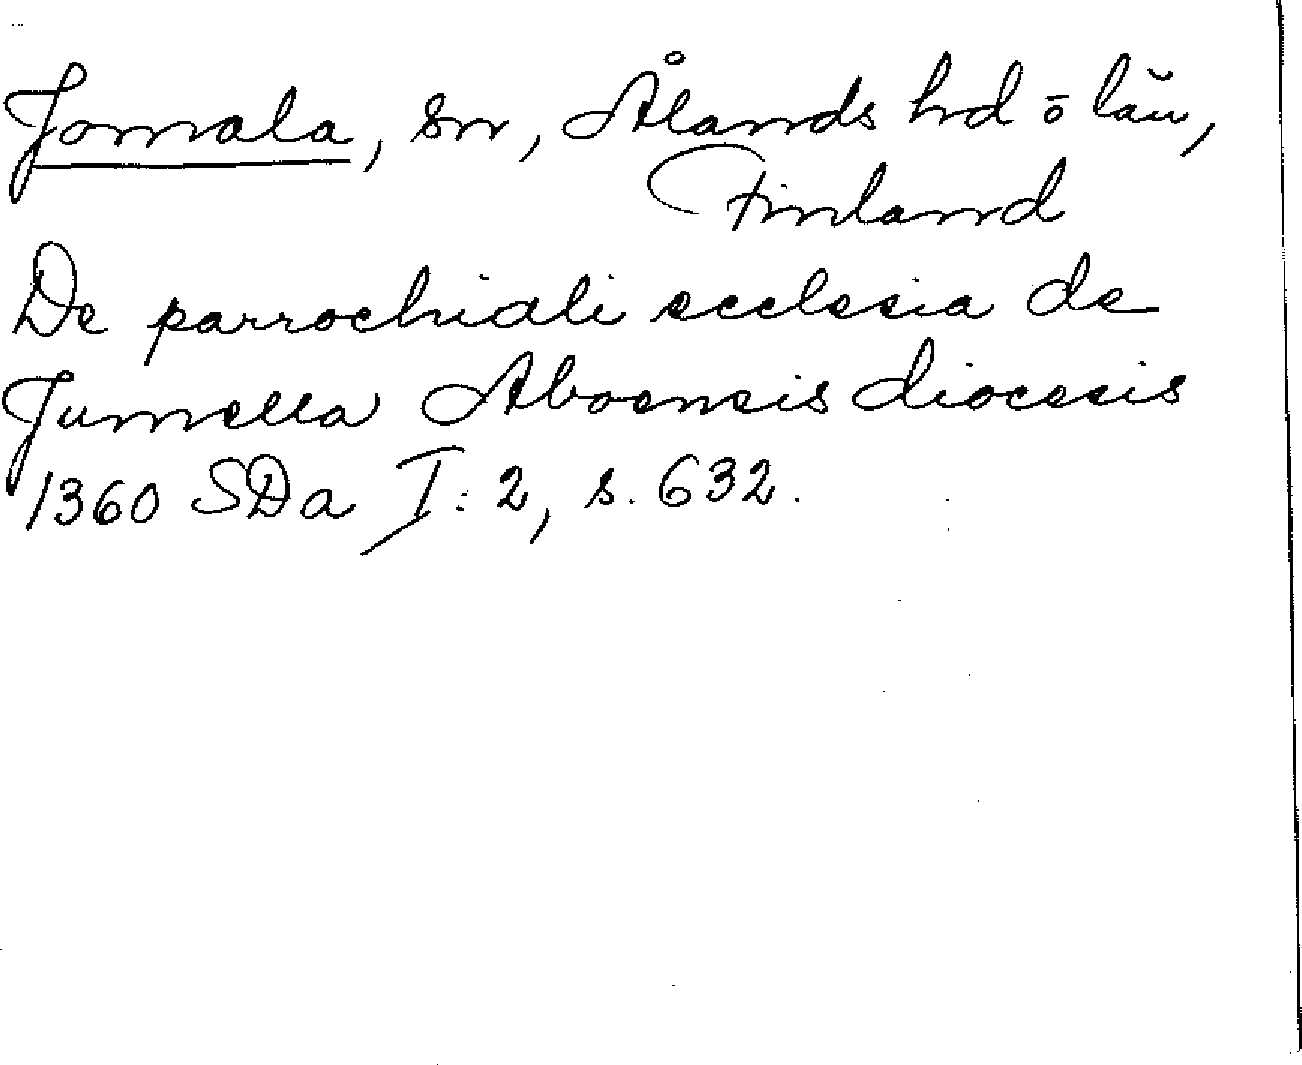 Jomala, sn, Ålands hd ō län,
Finland
De parrochiali ecclesia de
Jumella Aboensis diocesis
1360 SDa I:2, s. 632.